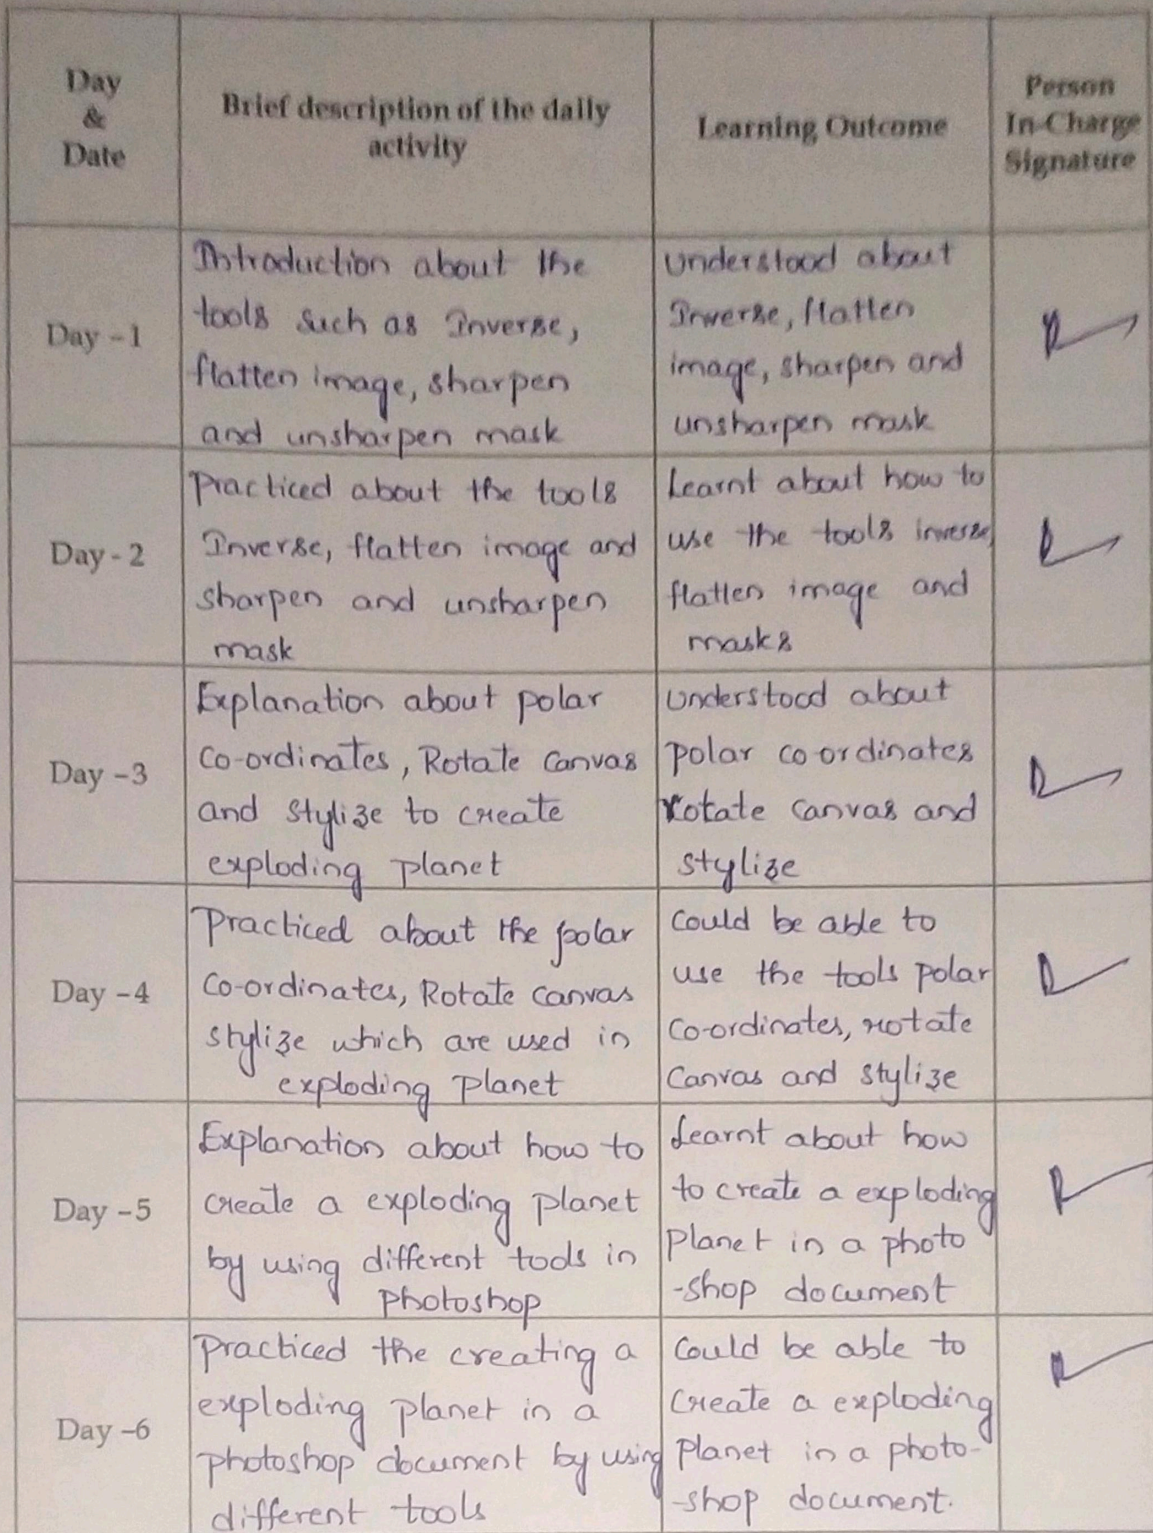 Day
&
Date
Brief description of the daily
activity
Learning Outcome
Person
In-Charge
Signature
Day -1
Introduction about the
tools such as Inverse,
flatten image, sharpen
and unsharpen mask
understood about
Inverse, flatten
image, sharpen and
unsharpen mask
Day - 2
Practiced about the tools
Inverse, flatten image and
sharpen and unsharpen
mask
Learnt about how to
use the tools inverse,
flatten image and
masks
Day -3
Explanation about polar
co-ordinates, Rotate canvas
and stylize to create
exploding planet
understood about
polar co ordinates
rotate canvas and
stylize
Day -4
Practiced about the polar
co-ordinates, Rotate canvas
stylize which are used in
exploding planet
could be able to
use the tools polar
co-ordinates, rotate
canvas and stylize
Day -5
Explanation about how to
create a exploding planet
by using different tools in
photoshop
Learnt about how
to create a exploding
planet in a photo
-shop document
Day -6
Practiced the creating a
exploding planet in a
photoshop document by using
different tools
could be able to
create a exploding
planet in a photo-
-shop document.